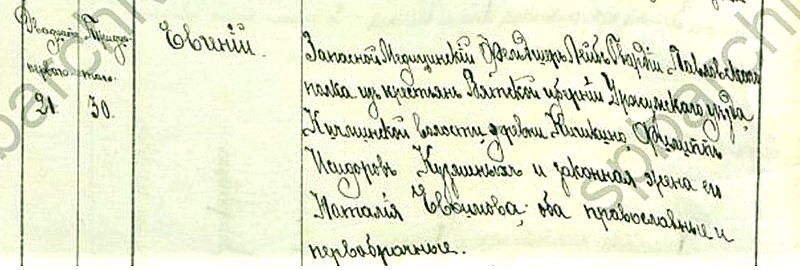 Двадцать
перваго
21
Тридца-
таго.
30.
Евгеній.
Запасной Медицинскій Фельдшеръ Лейбъ Гвардіи Павловскаго
полка изъ крестьянъ Вятской губерніи Уржумскаго уѣзда,
волости, деревни Кичкино Филиппъ
Исидоровъ Кузминыхъ и законная жена его
Наталія Евѳимова, оба православные и
первобрачные.
spbarchi